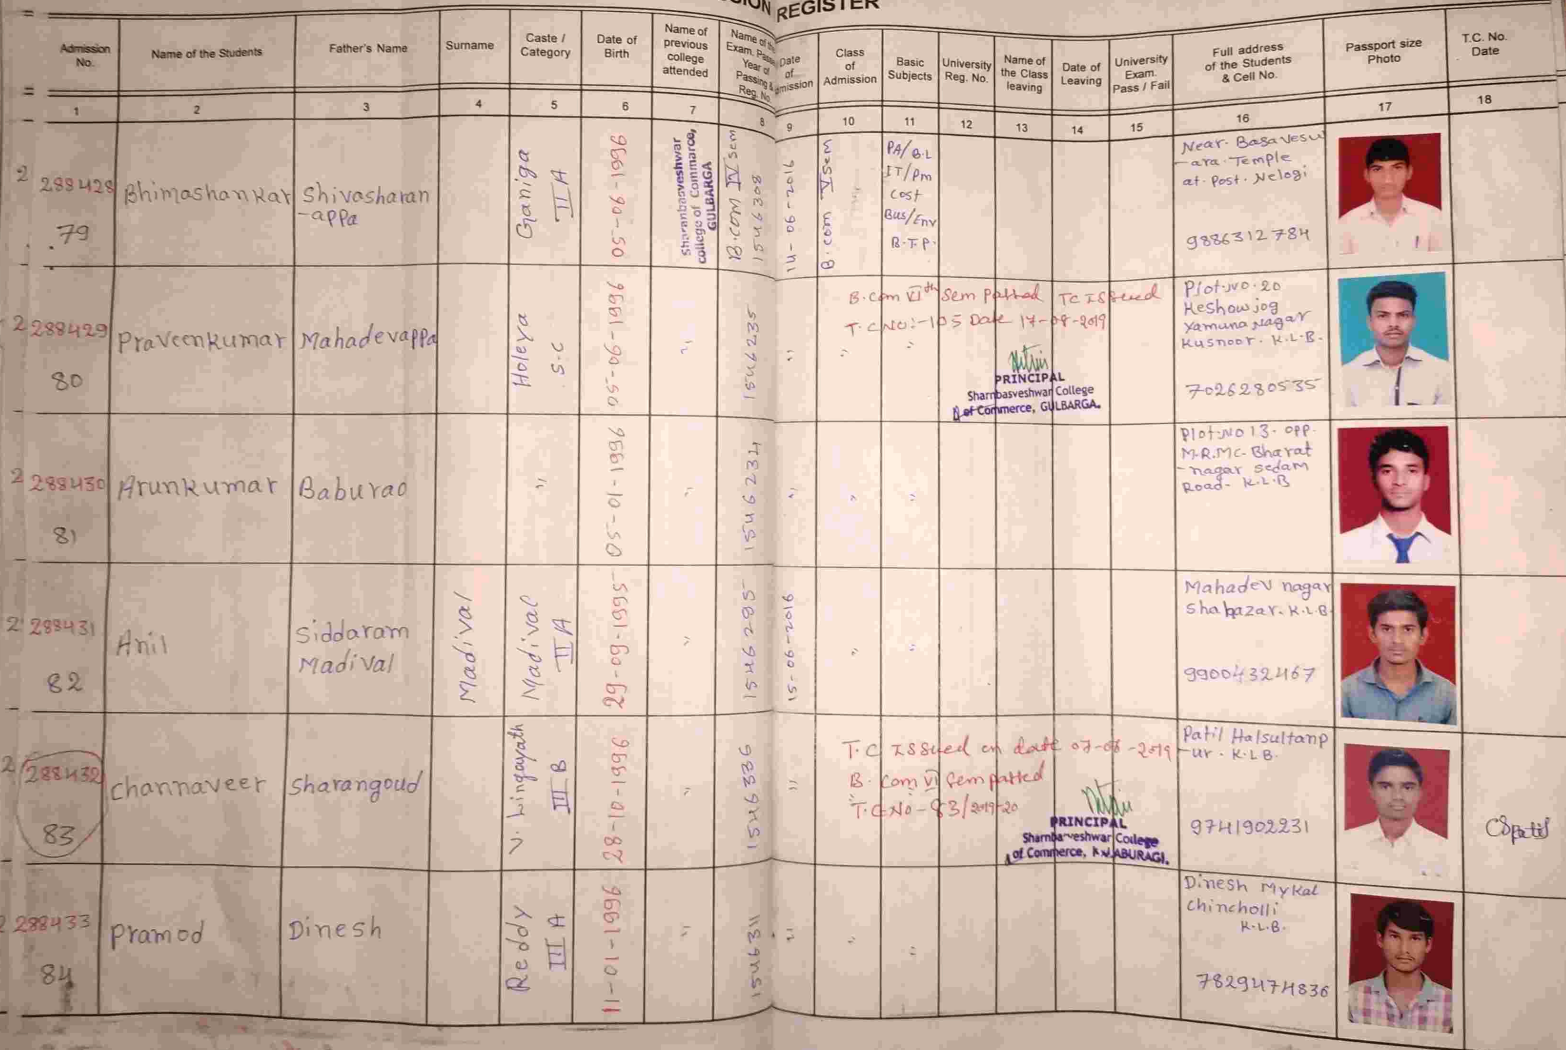 REGISTER
Admission No.
Name of the Students
Father's Name
Surname
Caste / Category
Date of Birth
Name of previous college attended
Name of the Exam. Passed Year of Passing & Reg. No.
Date of Admission
Class of Admission
Basic Subjects
University Reg. No.
Name of the Class leaving
Date of Leaving
University Exam. Pass / Fail
Full address of the Students & Cell No.
Passport size Photo
T.C. No. Date
1 2 3 4 5 6 7 8 9 10 11 12 13 14 15 16 17 18
288428
79
Bhimashankar
Shivasharan
-appa
Ganiga
II A
05-06-1996
Sharanbasveshwar
college of Commarce,
GULBARGA
B.com IV sem
1546308
14-06-2016
B.com V sem
PA/B.L
IT/Pm
Cost
Bus/Env
B.T.P.
Near. Basavesw
-ara. Temple
at. Post. Nelogi
9886312784
288429
80
Praveenkumar
Mahadevappa
Holeya
S.C
05-06-1996
"
1546235
"
"
"
B.Com VIth Sem passed TC Issued
T.C No:-105 Date 17-08-2019
PRINCIPAL
Sharnbasveshwar College
of Commerce, GULBARGA.
Plot.No.20
Keshowjog
Yamuna Nagar
Kusnoor. K.L.B.
7026280535
288430
81
Arunkumar
Baburao
"
05-01-1996
"
1546234
"
"
"
Plot.No 13. opp.
M.R.Mc. Bharat
-nagar Sedam
Road- K.L.B
288431
82
Anil
Siddaram
Madival
Madival
Madival
II A
29-09-1995
"
1546295
15-06-2016
"
"
Mahadev nagar
Shabazar. K.L.B
9900432467
288432
83
Channaveer
Sharangoud
V. Lingayath
III B
28-10-1996
"
1546336
"
T.C Issued on date 07-08-2019
B.Com VI Sem passed
T.C No-83/2019-20
PRINCIPAL
Sharnbasveshwar College
of Commerce, KALABURAGI.
Patil Halsultanp
-ur. K.L.B.
9741902231
CSpatil
288433
84
Pramod
Dinesh
Reddy
III A
11-01-1996
"
1546311
"
"
"
Dinesh Mykal
Chincholli
K.L.B.
7829474836